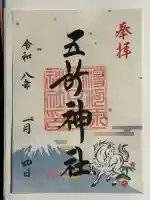 奉拝
五所神社
令和八年
一月
四日